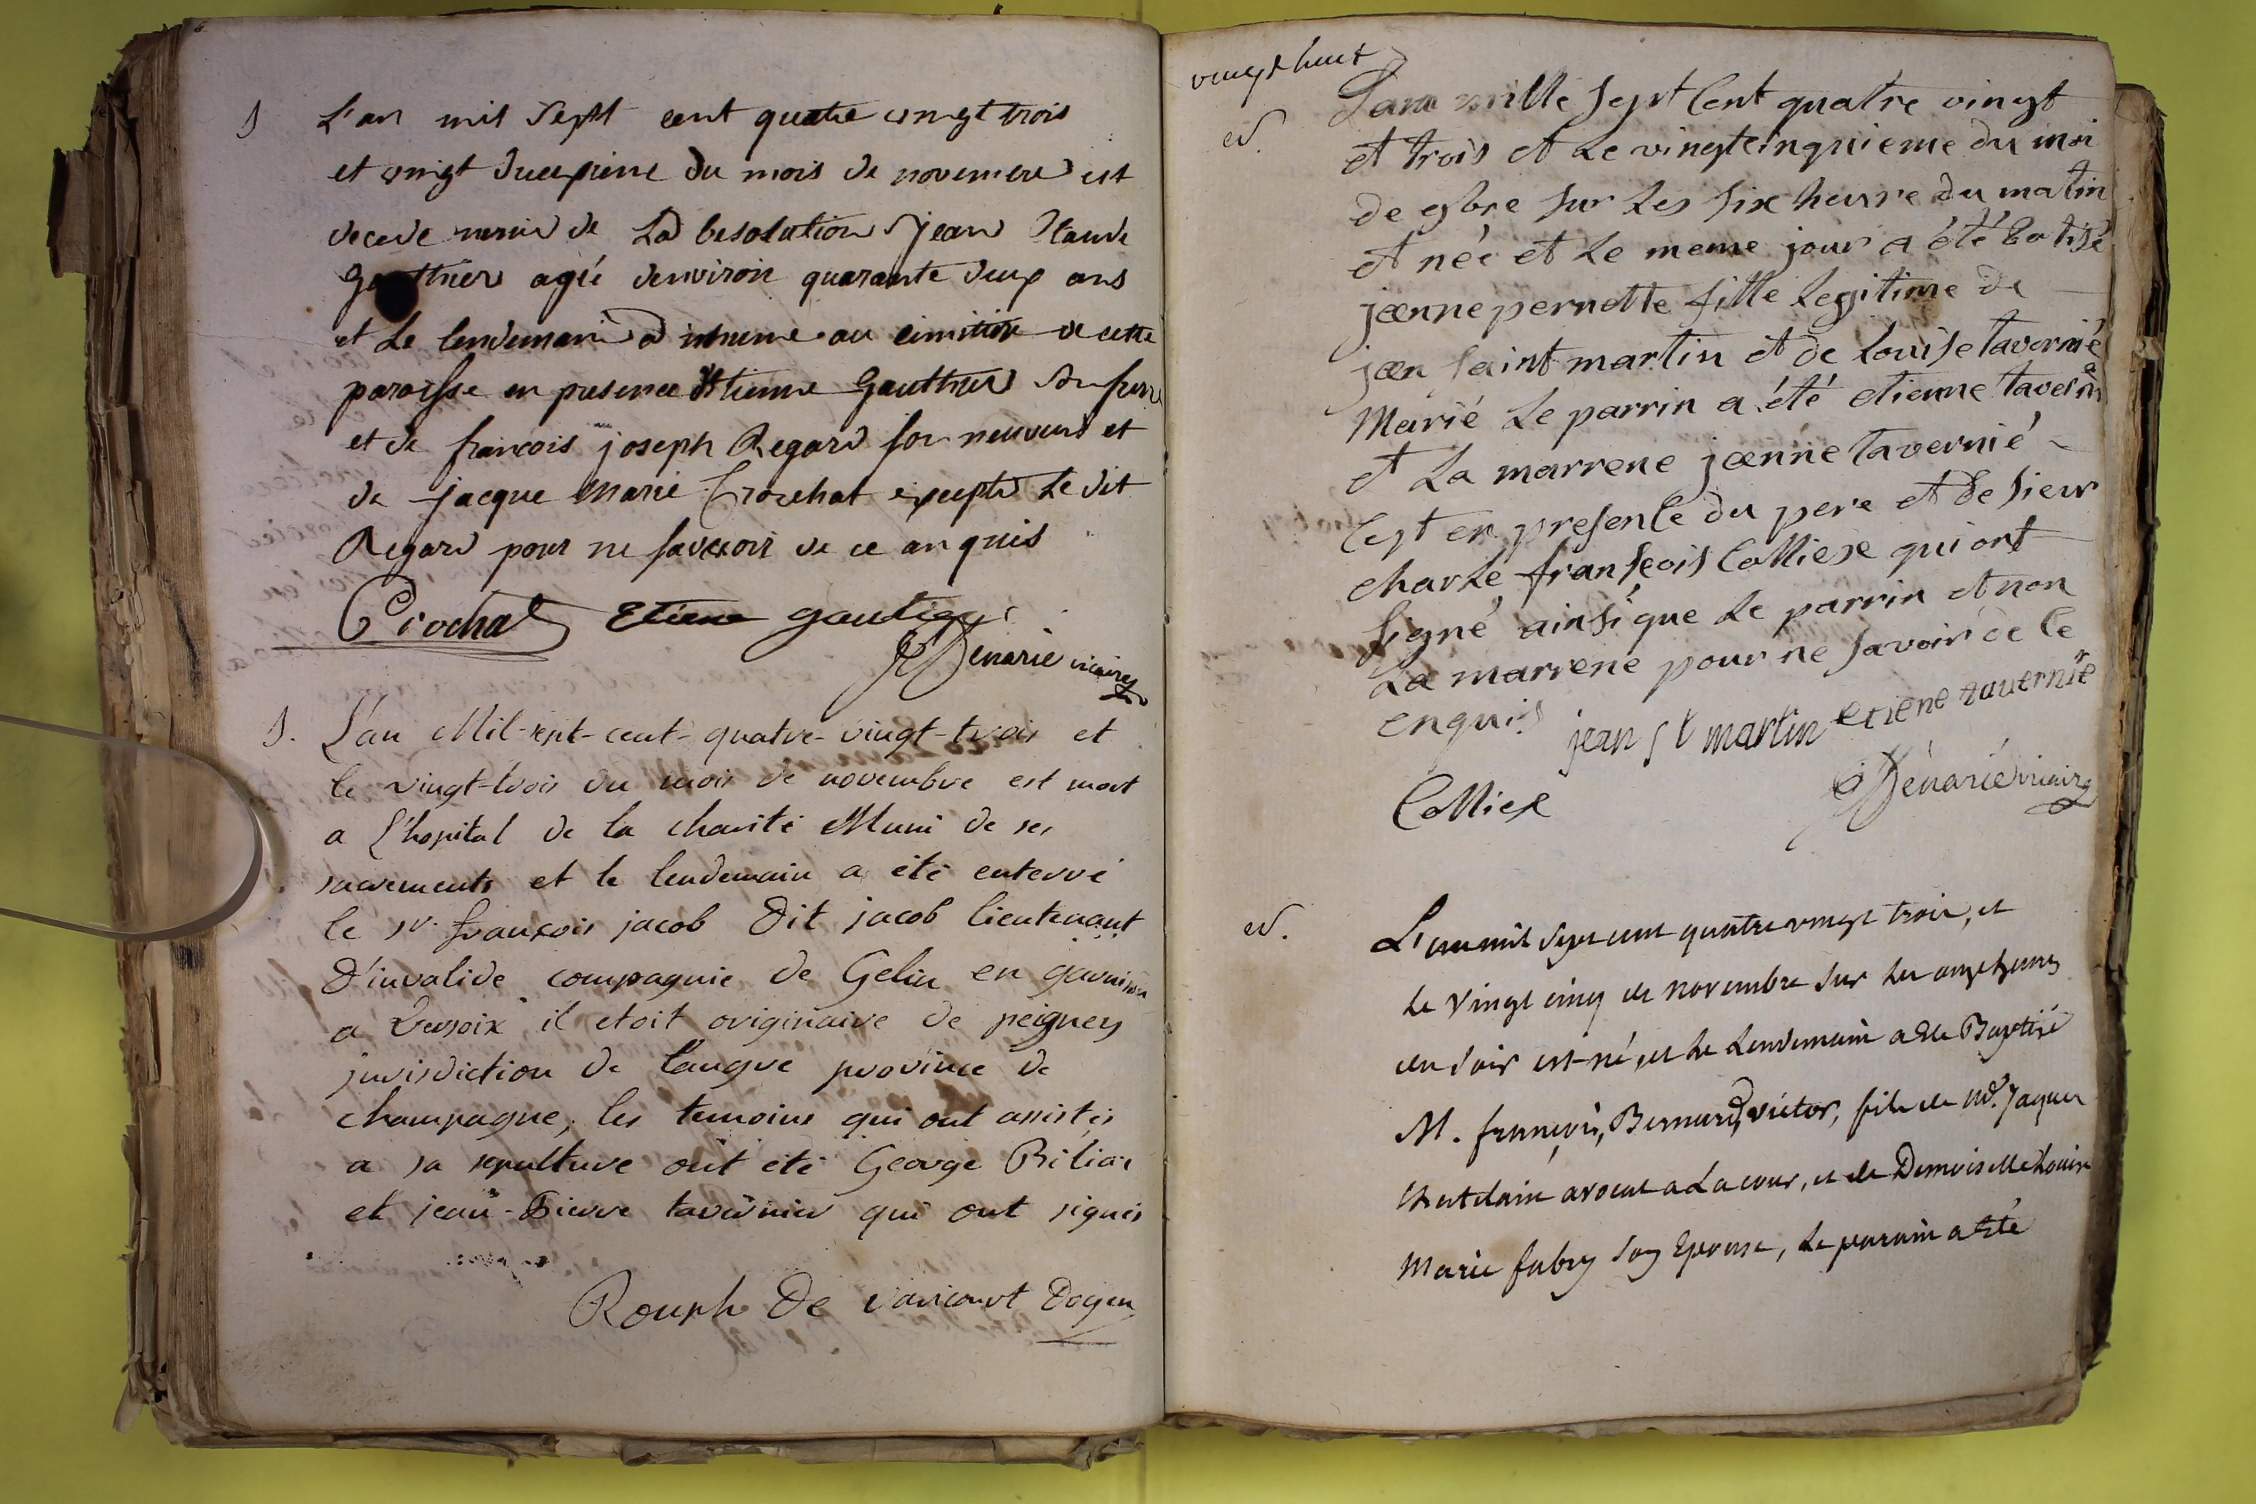 S L'an mil Sept cent quatre vingt trois
et vingt deuxieme du mois de novembre est
decede munis de La besolution jean Claude
Gauthier agié denviron quarante deux ans
et Le lendemain a inhume au cimitiere de cette
paroisse en presence detienne Gauthier son frere
et de francois joseph Regard son neuveus et
de jacque Marie Crochat excepté Le dit
Regard pour ne savoir de ce anquis
Crochat Etiene gautier
Dénarié vicaire
S. L'an Mil-sept-cent-quatre-vingt-trois et
le vingt-trois du mois de novembre est mort
a l'hopital de la charité Muni de ses
sacrements et le lendemain a été enterré
le sr. françois jacob Dit jacob lieutenant
D'invalide compagnie de Gelin en garnison
a Versoix il etoit originaire de peigney
jurisdiction de langre province de
champagne, les temoins qui ont assistés
a sa sepulture ont été George
et jean-Pierre tavernier qui ont signés
Rouph De varicourt Doyen
vingt huit
Lan mille sept Cent quatre vingt
et trois et Le vingtcinquieme du moi
de 9bre sur Les six heurre du matin
et néé et Le meme jour a été batisé
jeanne pernette fille Legitime de
jean saint martin et de Louise tavernié
Marié Le parrin a été etienne tavernié
et La marrene jeanne tavernié
Cest en presence du pere et de sieur
charle franseois Colliex qui ont
signé ainsique Le parrin et non
La marrene pour ne savoir de Ce
enquis jean st martin etiene tavernié
Colliex Dénarié vicaire
L'an mil Sept cent quatre vingt trois, et
Le Vingt cinq de novembre sur Les onze heures
du soir est né, et Le Lendemain a Eté Baptisé
M. françois, Bernard, victor, fils de Me. Jaques
Chatelain avocat a La cour, et de Demoiselle Louise
Marie fabry Son Epouse, Le parain a Eté